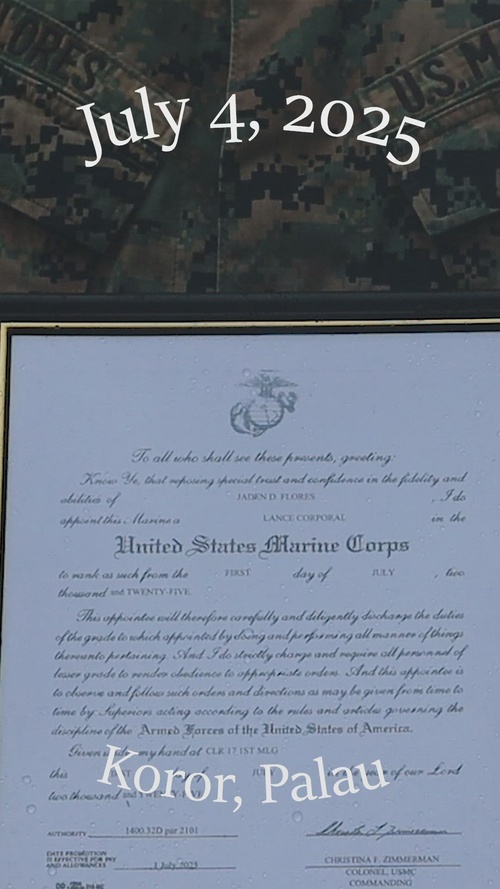 LORES
U.S.M
July 4, 2025
To all who shall see these presents, greeting:
Know Ye, that reposing special trust and confidence in the fidelity and
abilities of JADEN D. FLORES , I do
appoint this Marine a LANCE CORPORAL in the
United States Marine Corps
to rank as such from the FIRST day of JULY , two
thousand and TWENTY-FIVE.
This appointee will therefore carefully and diligently discharge the duties
of the grade to which appointed by doing and performing all manner of things
thereunto pertaining. And I do strictly charge and require all personnel of
lesser grade to render obedience to appropriate orders. And this appointee is
to observe and follow such orders and directions as may be given from time to
time by Superiors acting according to the rules and articles governing the
discipline of the Armed Forces of the United States of America.
Given under my hand at CLR 17 1ST MLG
this day of JULY in the year of our Lord
Koror, Palau
two thousand and TWENTY-FIVE
AUTHORITY 1400.32D par 2101
DATE PROMOTION
IS EFFECTIVE FOR PAY
AND ALLOWANCES 1 July 2025
CHRISTINA F. ZIMMERMAN
COLONEL, USMC
COMMANDING